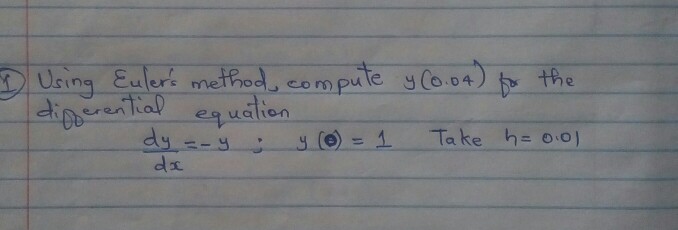 1 Using Euler's method, compute y(0.04) for the
differential equation
dy/dx = -y ; y(0) = 1 Take h = 0.01